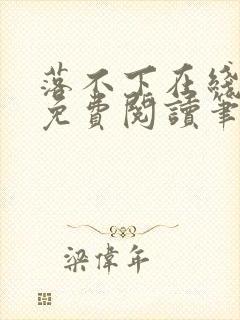 落不下在綫
免費閱讀筆
梁偉年